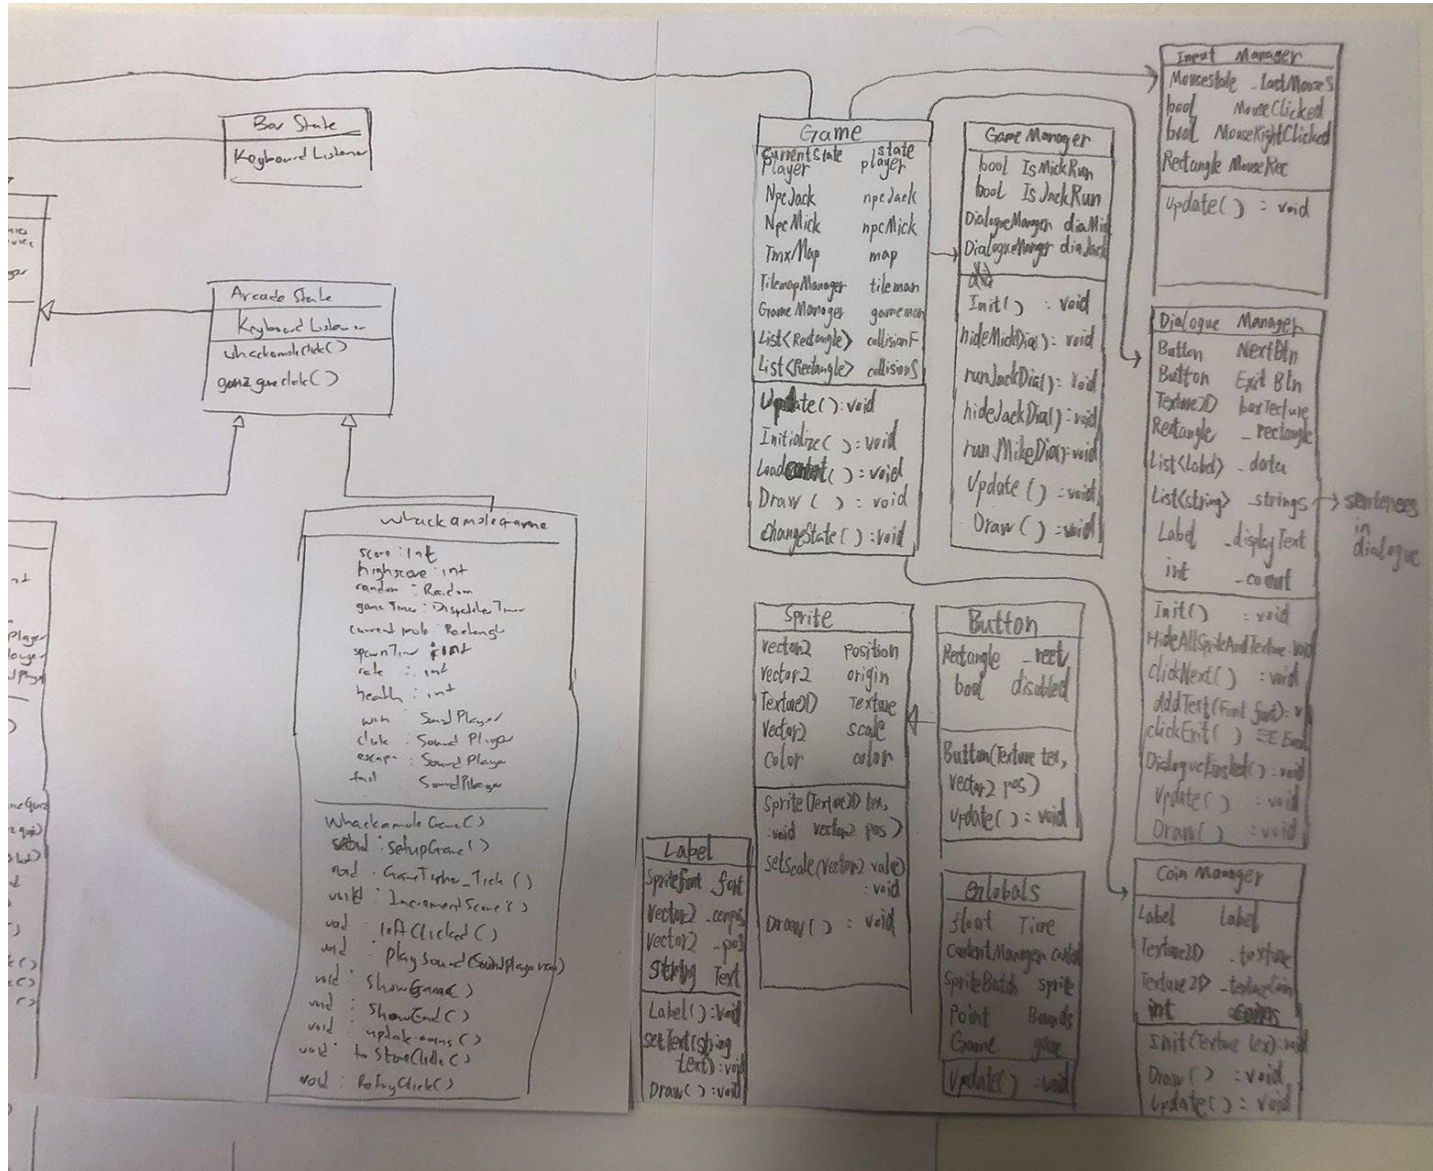 Bar State
Keyboard Listener
Arcade State
Keyboard Listener
whackamoleClick()
whackamoleGame
score : int
highscore : int
random : Random
gameTimer : DispatcherTimer
current mole : Rectangle
rate : int
health : int
win : Sound Player
click : Sound Player
escape : Sound Player
fail SoundPlayer
WhackamoleGame()
void : setupGame()
void : GameTimer_Tick()
void : IncrementScore()
void : leftClicked()
void : playSound(SoundPlayer
void : showGame()
void : showEnd()
void : update coins()
void : toStoreClick()
void : RetryClick()
Game
CurrentState state
Player player
NpcJack npcJack
NpcMick npcMick
TmxMap map
TilemapManager tileman
GameManager gameman
List<Rectangle> collisionF
List<Rectangle> collisionS
Update() : void
Initialize() : void
LoadContent() : void
Draw() : void
changeState() : void
Game Manager
bool IsMickRun
bool IsJackRun
DialogueManager diaMick
DialogueManger diaJack
Init() : void
hideMickDia() : void
runJackDia() : void
hideJackDia() : void
run MikeDia() : void
Update() : void
Draw() : void
Input Manager
Mousestate _LastMouseS
bool MouseClicked
bool MouseRightClicked
Rectangle MouseRec
Update() : void
Dialogue Manager
Button NextBtn
Button Exit Btn
Texture2D boxTecture
Rectangle _rectangle
List<Label> _data
List<string> _strings → sentences
in
dialogue
Label _displayText
int _count
Init() : void
HideAllSpriteAndTexture: void
clickNext() : void
addText(Font font): v
clickExit()
DialogueFinished() : void
Update() : void
Draw() : void
Sprite
vector2 position
vector2 origin
Texture2D Texture
Vector2 scale
Color color
Sprite(Texture2D tex,
:void vector2 pos)
setScale(Vector2 value)
: void
Draw() : void
Button
Rectangle _rect
bool disabled
Button(Texture tex,
Vector2 pos)
Update() : void
Label
Spritefont _font
Vector2 _pos
String Text
Label() : void
setText(string
text) : void
Draw() : void
Globals
float Time
ContentManager
SpriteBatch sprite
Point Bounds
Game game
Update() : void
Coin Manager
Label Label
Texture2D _texture
Texture2D _textureCoin
int coins
Init(Texture tex) : void
Draw() : void
Update() : void